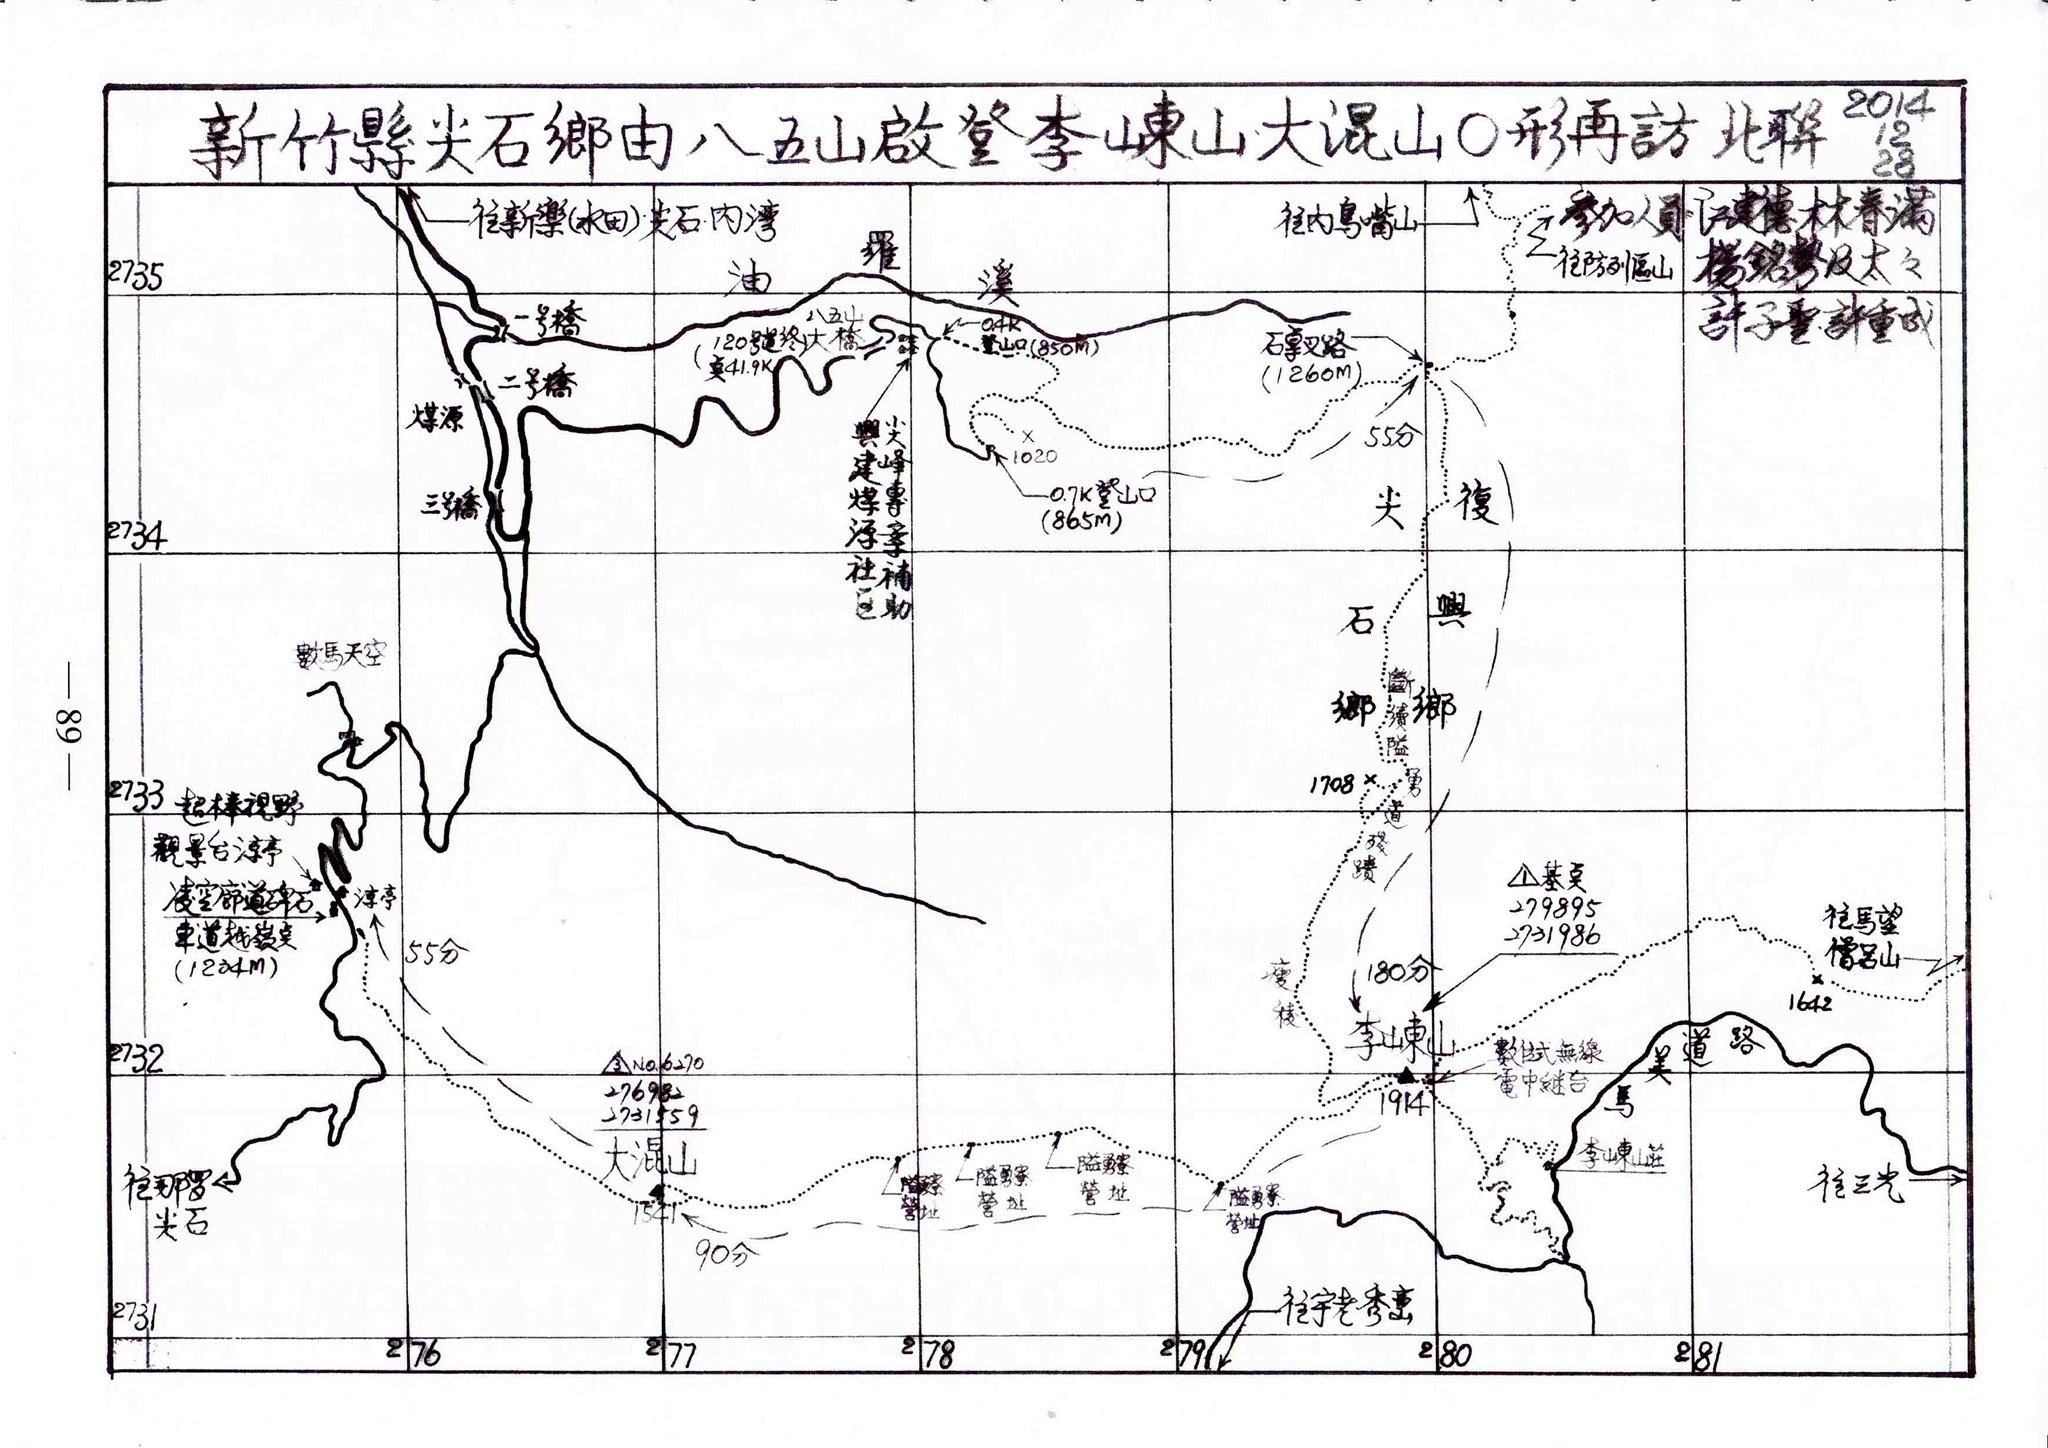 新竹縣尖石鄉由八五山啟登李崠山大混山〇形再訪 北聯
2014
12
28
往新樂(水田)尖石.内湾
油羅溪
往内鳥嘴山
往防列區山
参加人員:江建德.林春滿
楊銘勢及太々
許子聖.許重成
2735
一号橋
二号橋
煤源
三号橋
八五山
大橋
(120号道終
点41.9K)
0.4K
登山口(850M)
尖峰專案補助
興建煤源社区
1020
0.7K登山口
(865M)
石草叉路
(1260M)
55分
尖石鄉
復興鄉
2734
數馬天空
斷續隘勇道殘蹟
1708
2733
起棒視野
觀景台涼亭
凌空廊道碎石
車道越嶺点
(1234M)
涼亭
55分
瘦稜
180分
基点
279895
2731986
李崠山
1914
數位式無線
電中継台
往馬望
僧呂山
1642
2732
No.6270
276982
2731559
大混山
1541
90分
隘勇寮
營址
隘勇寮
營址
隘勇寮
營址
隘勇寮
營址
馬美道路
李崠山莊
往三光
往那羅
尖石
往宇老秀巒
2731
276
277
278
279
280
281
— 89 —